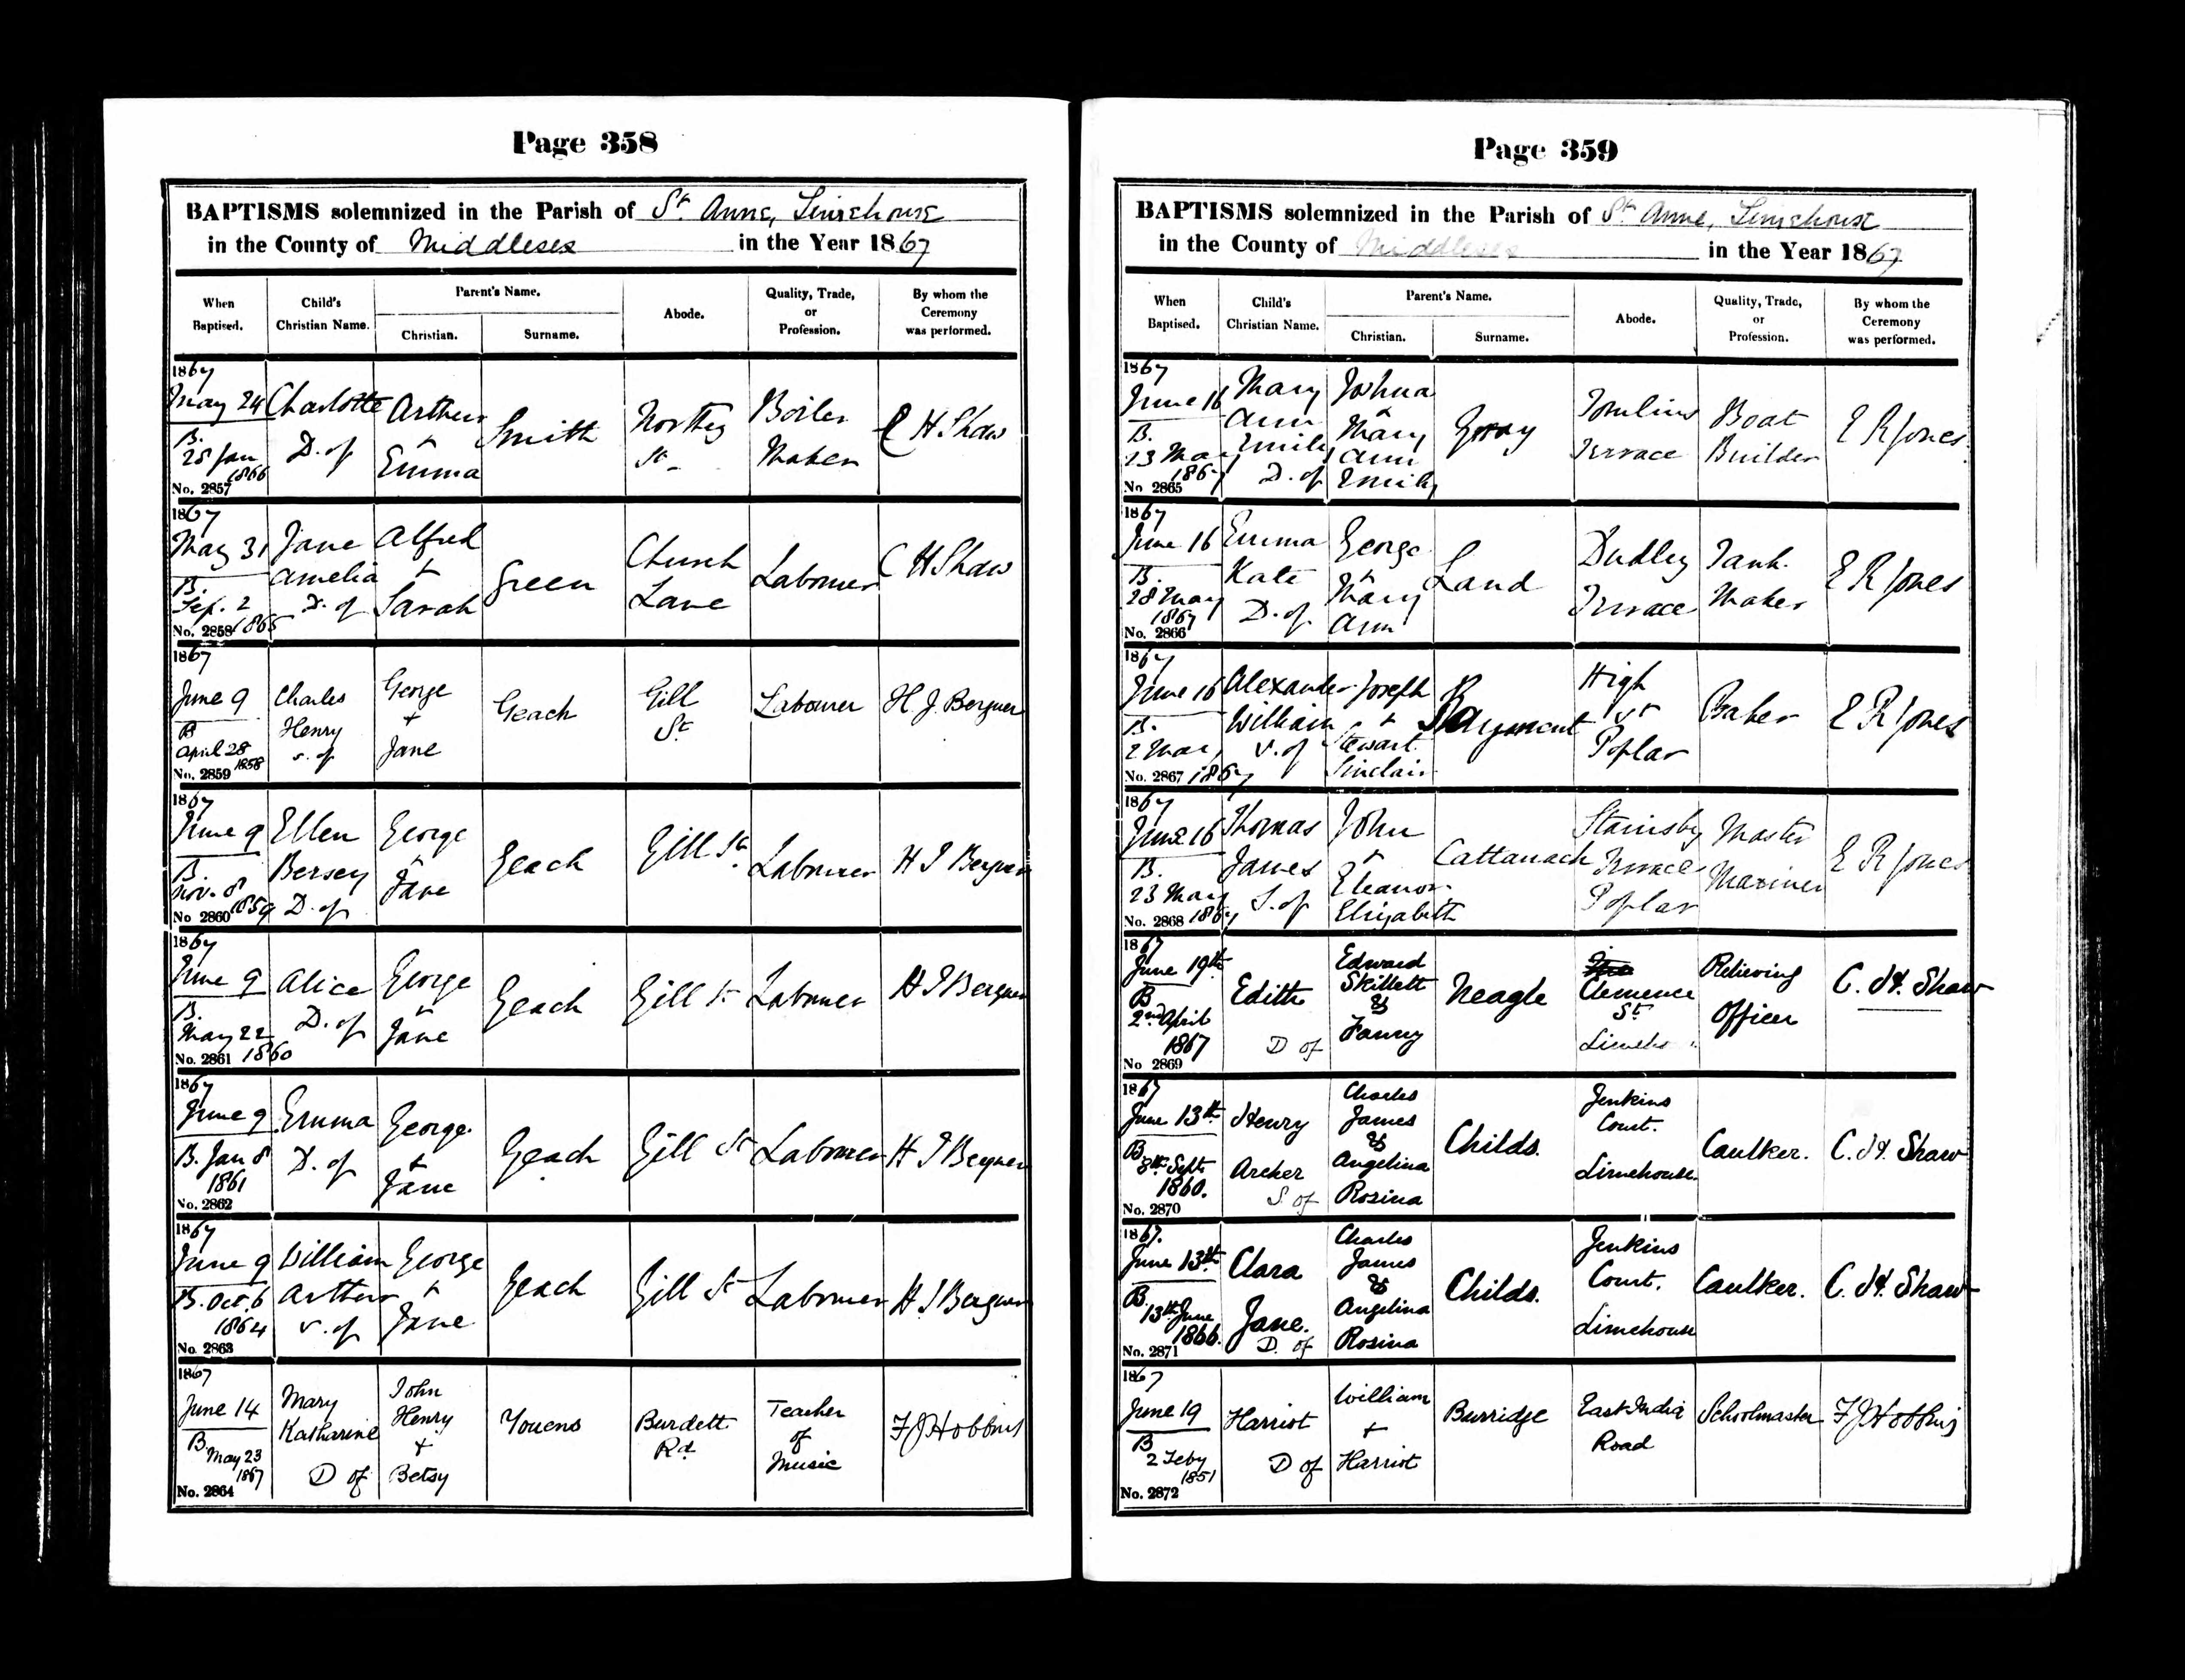 Page 358
BAPTISMS solemnized in the Parish of St Anne, Limehouse
in the County of Middlesex in the Year 1867
When Baptised. Child's Christian Name. Parent's Name. Christian. Surname. Abode. Quality, Trade, or Profession. By whom the Ceremony was performed.
1867
May 24 Charlotte Arthur Smith Northey Boiler C H Shaw
B. D. of + St Maker
28 Jan Emma
1866
No. 2857
1867
May 31 Jane Alfred Green Church Labourer C H Shaw
B. Amelia + Lane
Sep. 2 D. of Sarah
No. 2858 1865
1867
June 9 Charles George Geach Gill Labourer H. J. Berguer
B Henry + St
April 28 s. of Jane
1858
No. 2859
1867
June 9 Ellen George Geach Gill St Labourer H J Berguer
B. Bersey +
Nov. 8 D. of Jane
No 2860 1859
1867
June 9 Alice George Geach Gill St Labourer H J Berguer
B. D. of +
May 22 Jane
No. 2861 1860
1867
June 9 Emma George Geach Gill St Labourer H J Berguer
B. Jan 8 D. of +
1861 Jane
No. 2862
1867
June 9 William George Geach Gill St Labourer H J Berguer
B. Oct. 6 Arthur +
1864 S. of Jane
No. 2863
1867
June 14 Mary John Youens Burdett Teacher F J Hobbins
B. Katharine Henry Rd of
May 23 + Music
1867 D of Betsy
No. 2864
Page 359
BAPTISMS solemnized in the Parish of St Anne, Limehouse
in the County of Middlesex in the Year 1867
When Baptised. Child's Christian Name. Parent's Name. Christian. Surname. Abode. Quality, Trade, or Profession. By whom the Ceremony was performed.
1867
June 16 Mary Joshua Gray Tomlins Boat E R Jones
B. Ann + Terrace Builder
13 May Emily Mary Ann
1867 D. of Emily
No. 2865
1867
June 16 Emma George Land Dudley Tank E R Jones
B. Kate + Terrace Maker
28 May D. of Mary
1867 Ann
No. 2866
1867
June 16 Alexander Joseph Rayment High Baker E R Jones
B. William + St
2 May S. of Stewart Poplar
No. 2867 1867 Sinclair
1867
June 16 Thomas John Cattanach Stainsby Master E R Jones
B. James + Terrace Mariner
23 May S. of Eleanor Poplar
No. 2868 1867 Elizabeth
1867
June 19th Edith Edward Neagle Clemence Relieving C. H. Shaw
B Skillett St Officer
2nd April &
1867 D of Fanny
No 2869
1867
June 13th Henry Charles Childs. Jenkins Caulker. C. H. Shaw
B James Court.
8th Sept & Limehouse.
1860. Archer Angelina
S of Rosina
No. 2870
1867.
June 13th Clara Charles Childs. Jenkins Caulker. C. H. Shaw
B. James Court.
13th June & Limehouse
1866. Jane. Angelina
D. of Rosina
No. 2871
1867
June 19 Harriot William Burridge East India Schoolmaster F J Hobbins
B + Road
2 Feby D of Harriot
1851
No. 2872